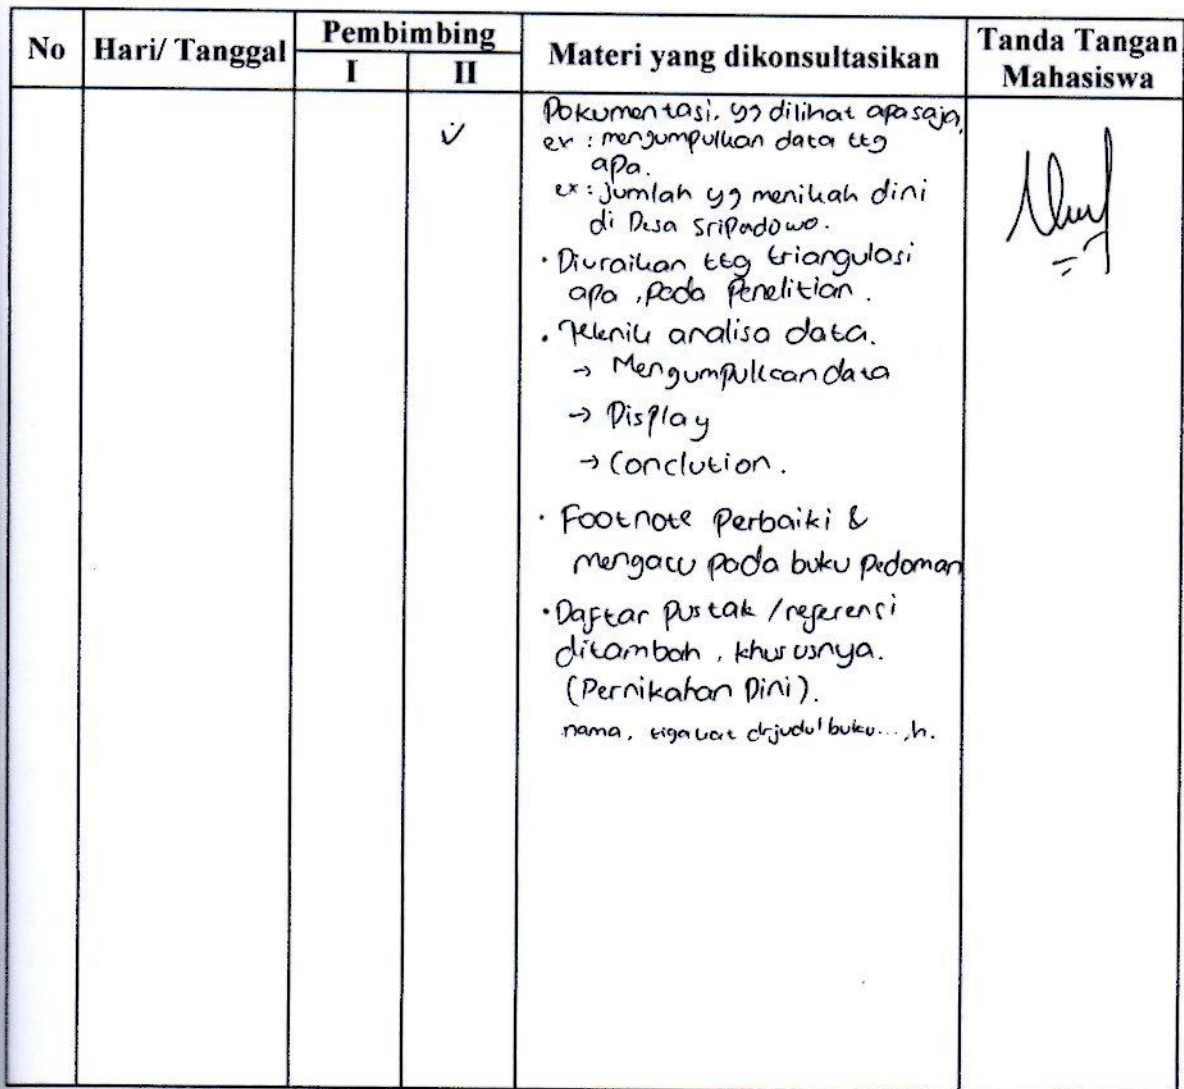 No Hari/ Tanggal Pembimbing Materi yang dikonsultasikan Tanda Tangan Mahasiswa
I II
Dokumentasi, yg dilihat apa saja,
ex : mengumpulkan data ttg
apa.
ex : jumlah yg menikah dini
di Desa Sripadowo.
• Diuraikan ttg triangulasi
apa, pada Penelitian.
• Teknik analisa data.
→ Mengumpulkan data
→ Display
→ Conclution.
• Footnote Perbaiki &
mengacu pada buku pedoman
• Daftar Pustak / referensi
ditambah, khususnya.
(Pernikahan Dini).
nama, judul buku..., h.